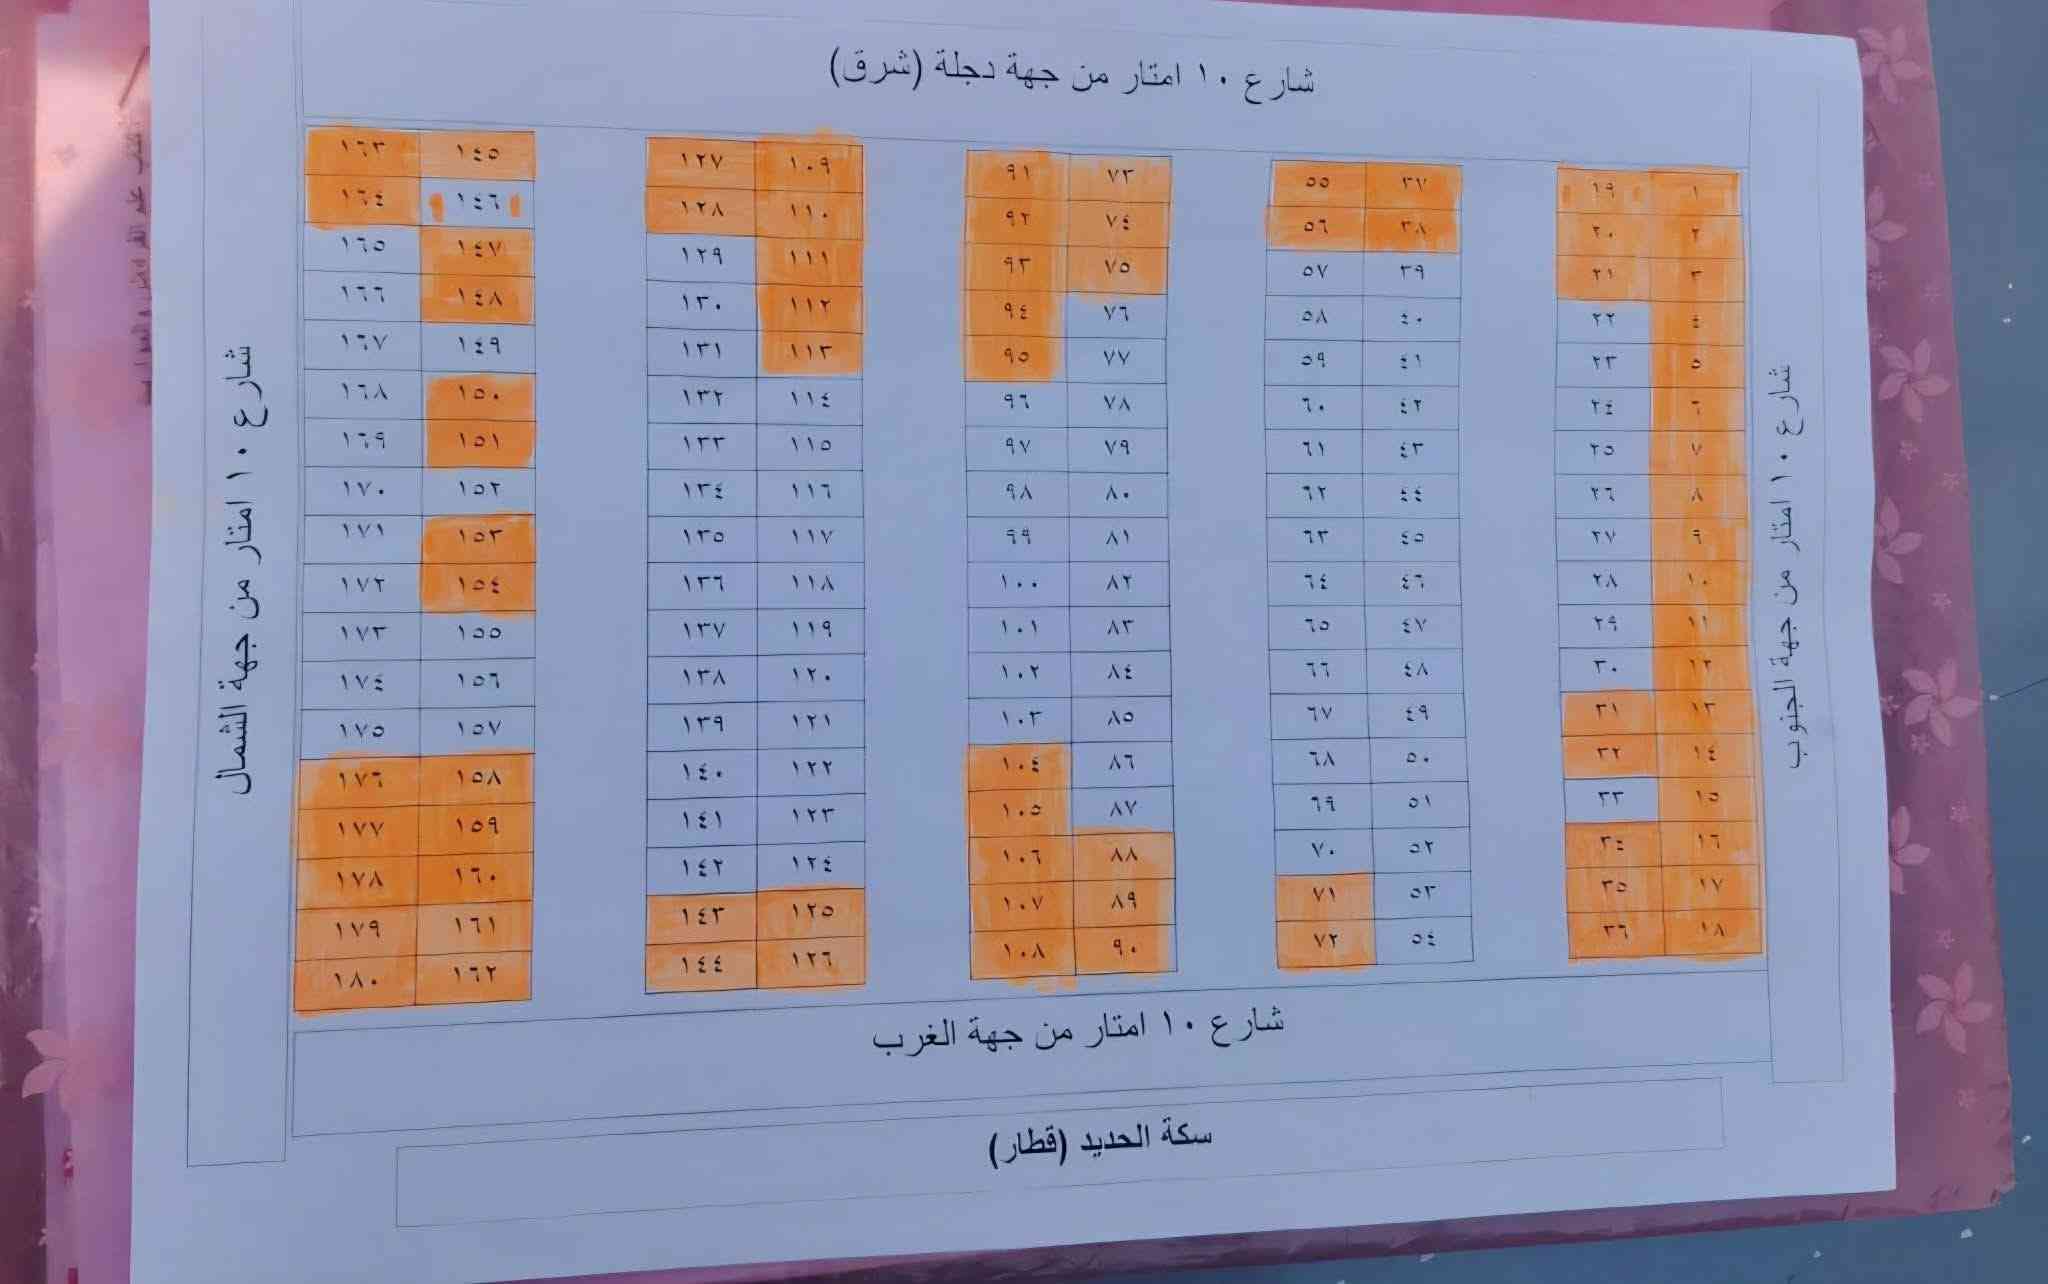 شارع ١٠ امتار من جهة دجلة (شرق)
شارع ١٠ امتار من جهة الجنوب
١ ١٩ ٣٧ ٥٥ ٧٣ ٩١ ١٠٩ ١٢٧ ١٤٥ ١٦٣
٢ ٢٠ ٣٨ ٥٦ ٧٤ ٩٢ ١١٠ ١٢٨ ١٤٦ ١٦٤
٣ ٢١ ٣٩ ٥٧ ٧٥ ٩٣ ١١١ ١٢٩ ١٤٧ ١٦٥
٤ ٢٢ ٤٠ ٥٨ ٧٦ ٩٤ ١١٢ ١٣٠ ١٤٨ ١٦٦
٥ ٢٣ ٤١ ٥٩ ٧٧ ٩٥ ١١٣ ١٣١ ١٤٩ ١٦٧
٦ ٢٤ ٤٢ ٦٠ ٧٨ ٩٦ ١١٤ ١٣٢ ١٥٠ ١٦٨
٧ ٢٥ ٤٣ ٦١ ٧٩ ٩٧ ١١٥ ١٣٣ ١٥١ ١٦٩
٨ ٢٦ ٤٤ ٦٢ ٨٠ ٩٨ ١١٦ ١٣٤ ١٥٢ ١٧٠
٩ ٢٧ ٤٥ ٦٣ ٨١ ٩٩ ١١٧ ١٣٥ ١٥٣ ١٧١
١٠ ٢٨ ٤٦ ٦٤ ٨٢ ١٠٠ ١١٨ ١٣٦ ١٥٤ ١٧٢
١١ ٢٩ ٤٧ ٦٥ ٨٣ ١٠١ ١١٩ ١٣٧ ١٥٥ ١٧٣
١٢ ٣٠ ٤٨ ٦٦ ٨٤ ١٠٢ ١٢٠ ١٣٨ ١٥٦ ١٧٤
١٣ ٣١ ٤٩ ٦٧ ٨٥ ١٠٣ ١٢١ ١٣٩ ١٥٧ ١٧٥
١٤ ٣٢ ٥٠ ٦٨ ٨٦ ١٠٤ ١٢٢ ١٤٠ ١٥٨ ١٧٦
١٥ ٣٣ ٥١ ٦٩ ٨٧ ١٠٥ ١٢٣ ١٤١ ١٥٩ ١٧٧
١٦ ٣٤ ٥٢ ٧٠ ٨٨ ١٠٦ ١٢٤ ١٤٢ ١٦٠ ١٧٨
١٧ ٣٥ ٥٣ ٧١ ٨٩ ١٠٧ ١٢٥ ١٤٣ ١٦١ ١٧٩
١٨ ٣٦ ٥٤ ٧٢ ٩٠ ١٠٨ ١٢٦ ١٤٤ ١٦٢ ١٨٠
شارع ١٠ امتار من جهة الشمال
شارع ١٠ امتار من جهة الغرب
سكة الحديد (قطار)